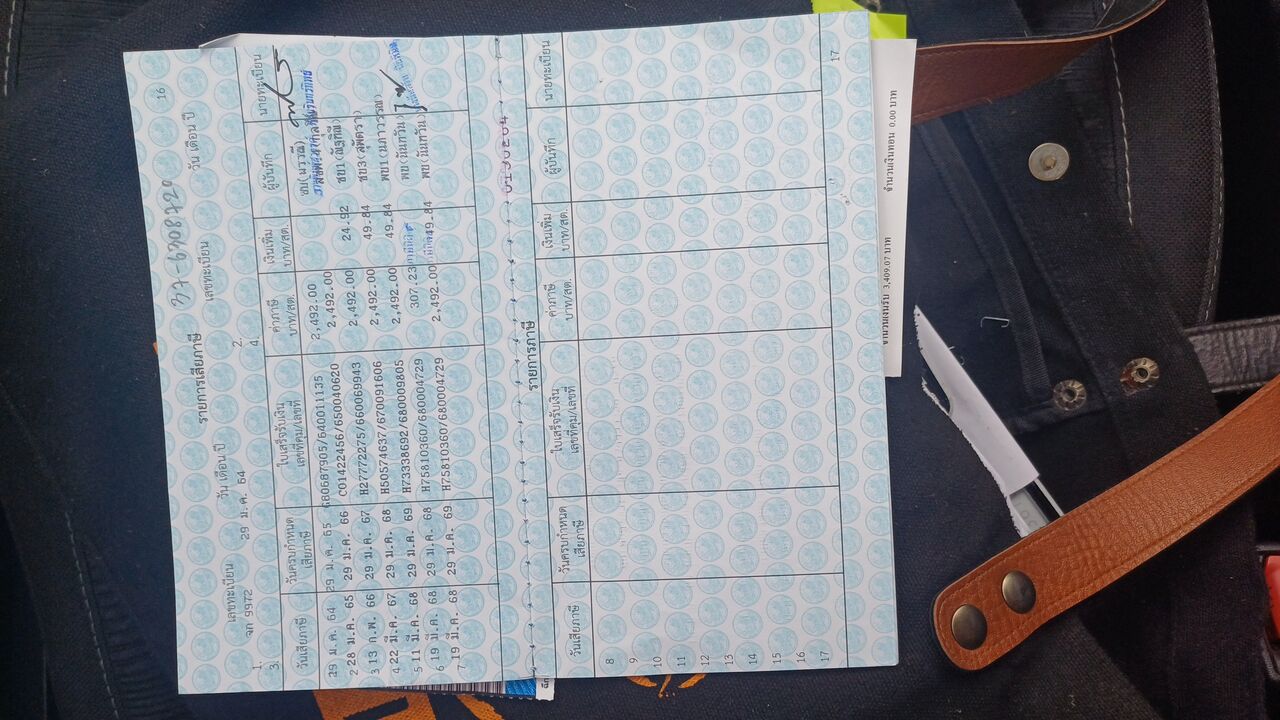 16
37-6308720
รายการเสียภาษี
เลขทะเบียน วัน เดือน ปี เลขทะเบียน วัน เดือน ปี
1. จก 9972 29 ม.ค. 64 2.
3. 4.
วันเสียภาษี วันครบกำหนดเสียภาษี ใบเสร็จรับเงิน เลขที่คุม/เลขที่ ค่าภาษี บาท/สต. เงินเพิ่ม บาท/สต. ผู้บันทึก นายทะเบียน
29 ม.ค. 64 29 ม.ค. 65 680687905/640011135 2,492.00
2 28 ม.ค. 65 29 ม.ค. 66 C01422456/650040620 2,492.00
3 13 ก.พ. 66 29 ม.ค. 67 H27772275/660069943 2,492.00 24.92
4 22 มี.ค. 67 29 ม.ค. 68 H50574637/670091606 2,492.00 49.84
5 11 มี.ค. 68 29 ม.ค. 69 H73338692/680009805 2,492.00 49.84
6 19 มี.ค. 68 29 ม.ค. 68 H75810360/680004729 307.23
7 19 มี.ค. 68 29 ม.ค. 69 H75810360/680004729 2,492.00 49.84
0190204
รายการภาษี
วันเสียภาษี วันครบกำหนดเสียภาษี ใบเสร็จรับเงิน เลขที่คุม/เลขที่ ค่าภาษี บาท/สต. เงินเพิ่ม บาท/สต. ผู้บันทึก นายทะเบียน
8
9
10
11
12
13
14
15
16
17
17
จำนวนเงินรับ 3,409.07 บาท จำนวนเงินทอน 0.00 บาท